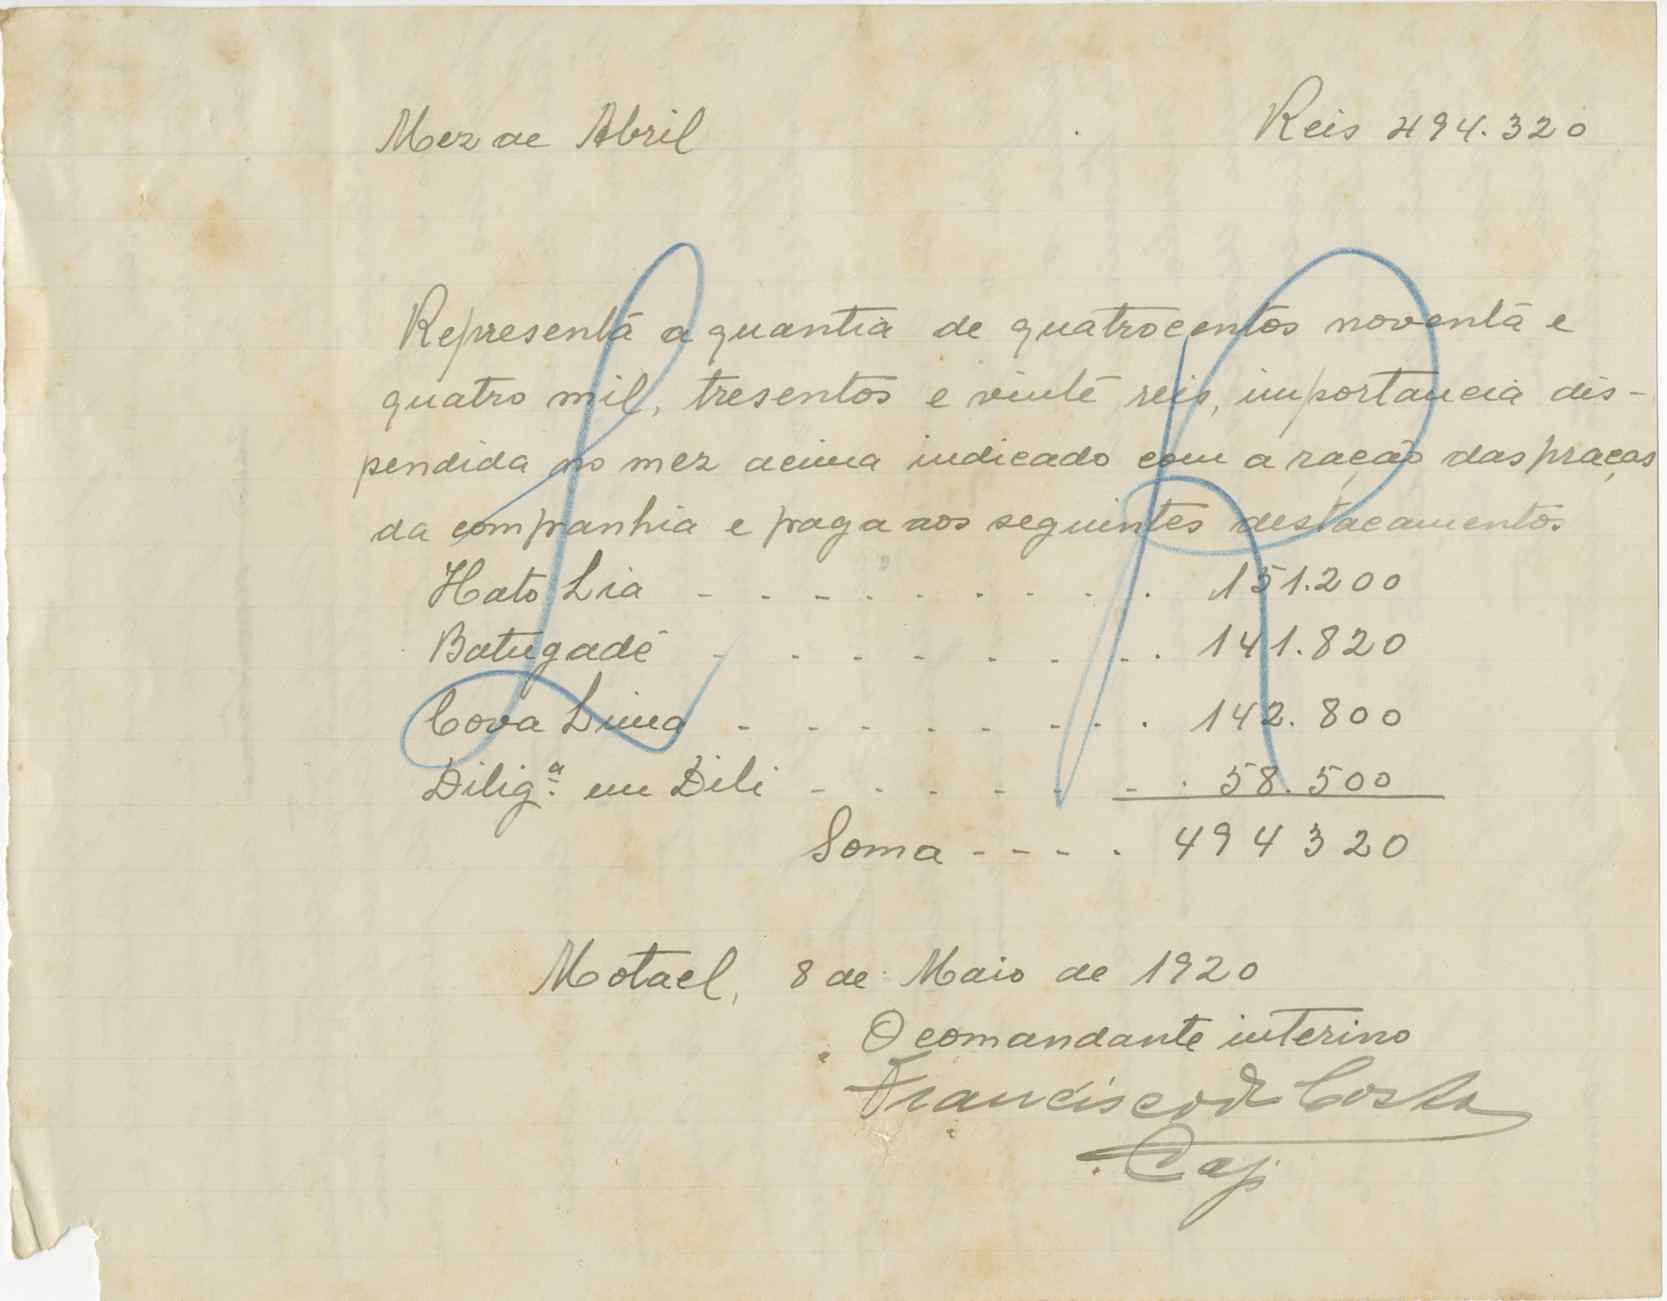 Mez de Abril Reis 494.320
Representa a quantia de quatrocentos noventa e
quatro mil, tresentos e vinte reis, importancia dis-
pendida no mez acima indicado com a ração das praças
da companhia e paga aos seguintes destacamentos
Hato Lia - - - - - - - - . 151.200
Batugadé - - - - - - - - . 141.820
Cova Lima - - - - - - - . 142.800
Dilig.ª em Dili - - - - - - . 58.500
Soma - - - . 494320
Motael, 8 de Maio de 1920
O comandante interino
Francisco da Costa
Cap.
LR